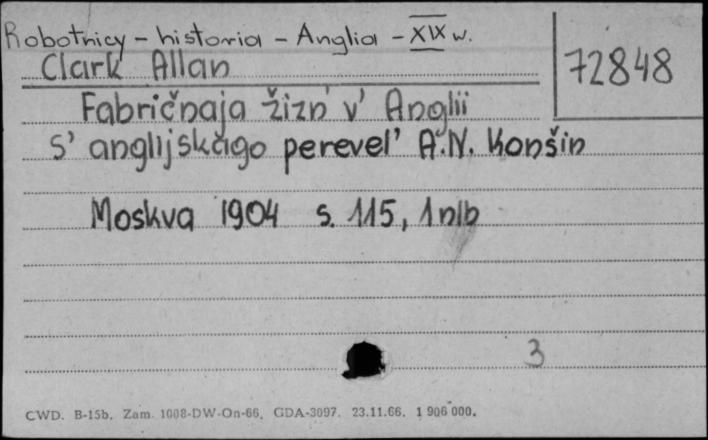 Robotnicy - historia - Anglia - XIX w.
Clark Allan
72848
Fabričnaja žizn' v' Anglii
s' anglijskago perevel' A.N. Konšin
Moskva 1904 s. 115, 1 nlb
3
CWD. B-15b. Zam. 1008-DW-On-66, GDA-3097. 23.11.66. 1 906 000.